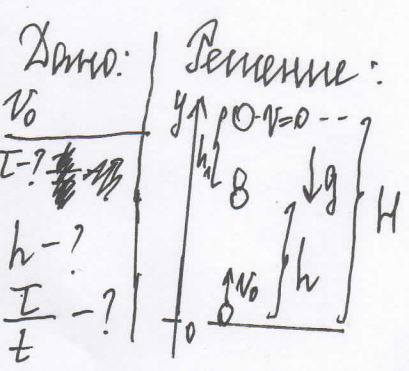 Дано:
v₀
τ-?
h-?
τ/t -?
Решение:
y
v=0
h₁
g
H
h
v₀
0